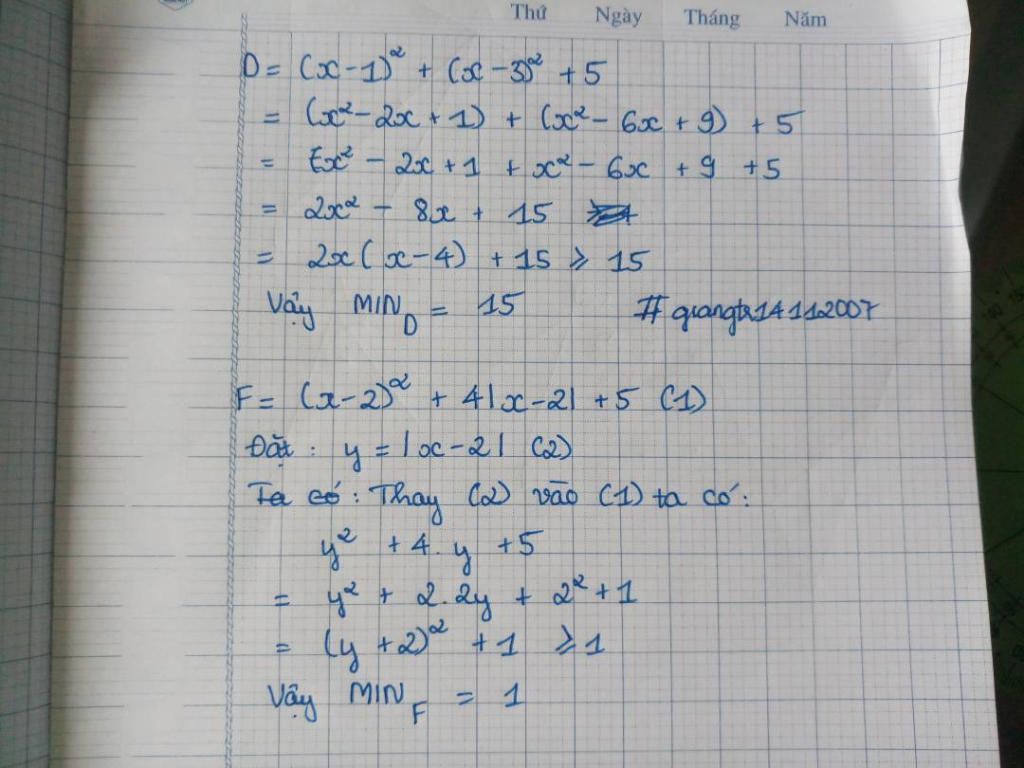 Thứ Ngày Tháng Năm
D = (x-1)² + (x-3)² + 5
= (x²-2x+1) + (x²-6x+9) + 5
= x² - 2x + 1 + x² - 6x + 9 + 5
= 2x² - 8x + 15
= 2x(x-4) + 15 ≥ 15
Vậy MIN_D = 15
F = (x-2)² + 4|x-2| + 5 (1)
Đặt: y = |x-2| (2)
Ta có: Thay (2) vào (1) ta có:
y² + 4.y + 5
= y² + 2.2y + 2² + 1
= (y+2)² + 1 ≥ 1
Vậy MIN_F = 1